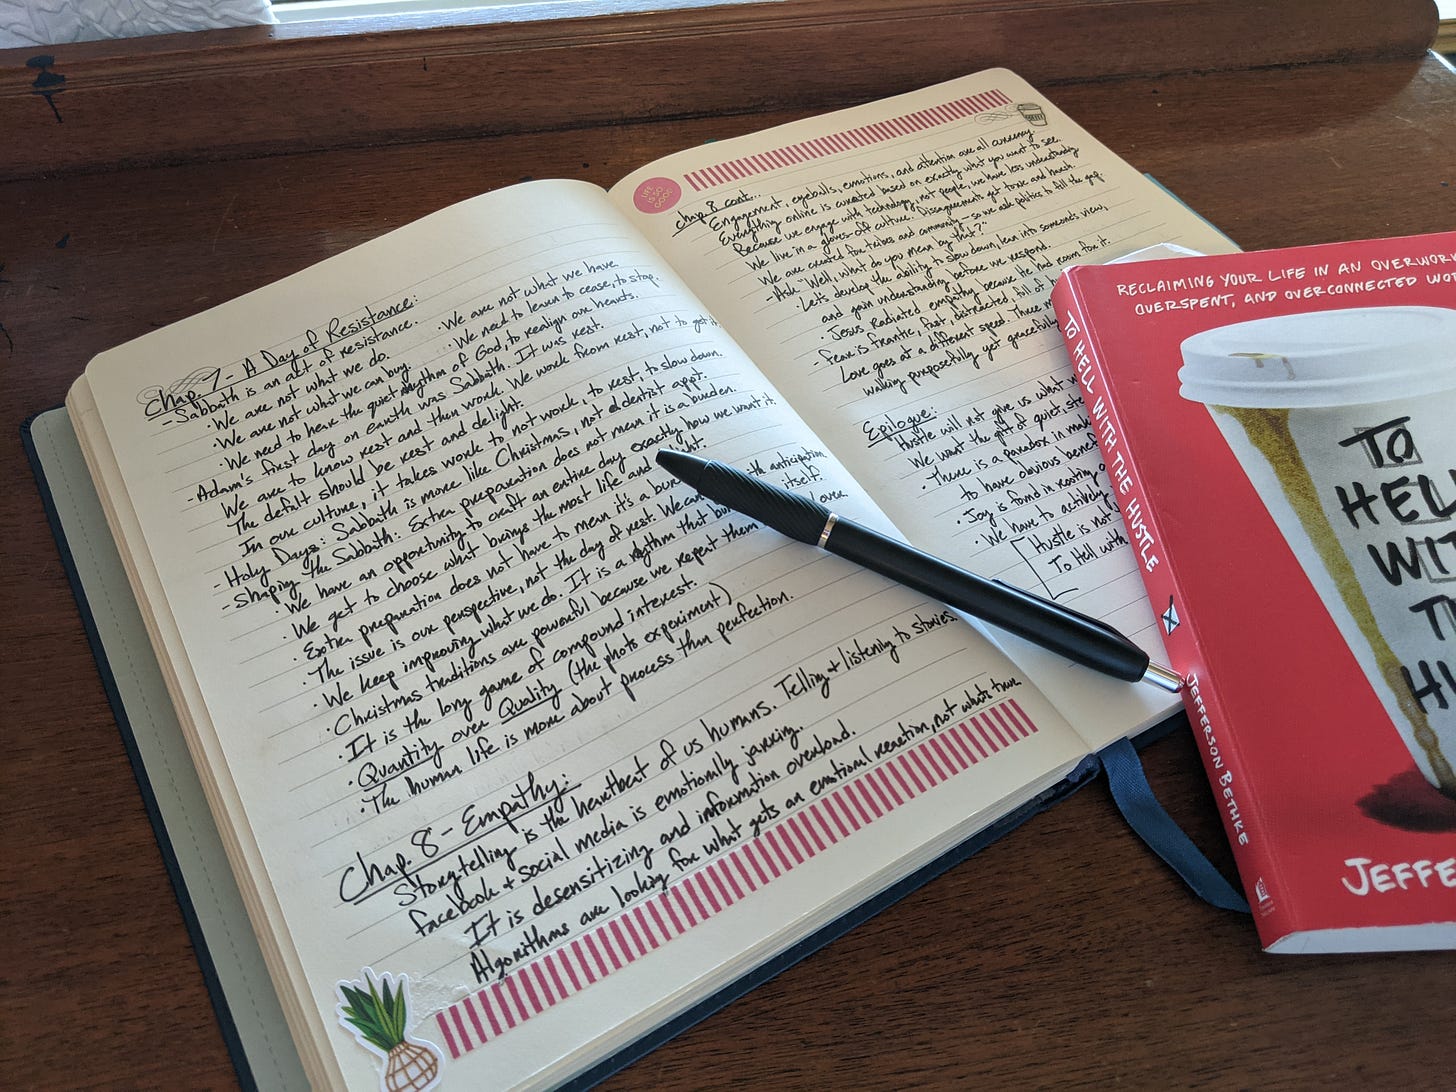 Chap. 7 - A Day of Resistance:
- Sabbath is an act of resistance.
· We are not what we do. · We are not what we have
· We are not what we can buy. · We need to learn to cease, to stop.
· We need to hear the quiet rhythm of God, to realign our hearts.
- Adam's first day on earth was Sabbath. It was rest.
We are to know rest and then work. We work from rest, not to get it.
The defalt should be rest and delight.
In our culture, it takes work to not work, to rest, to slow down.
- Holy Days: Sabbath is more like Christmas, not a dentist appt.
- Shaping the Sabbath: Extra preparation does not mean it is a burden.
· We have an opportunity to craft an entire day exactly how we want it.
· We get to choose what brings the most life and
· Extra preparation does not have to mean it's a with anticipation
· The issue is our perspective, not the day of rest. We can itself.
· We keep improving what we do. It is a rhythm that over.
· Christmas traditions are powerful because we repeat them
· It is the long game of compound interest.
· Quantity over Quality (the photo experiment)
· The human life is more about process than perfection.
Chap. 8 - Empathy:
Storytelling is the heartbeat of us humans. Telling + listening to stories.
Facebook + social media is emotionally jarring.
It is desensitizing and information overload.
Algorithms are looking for what gets an emotional reaction, not whats true
LIFE IS SO GOOD
COFFEE
chap. 8 cont...
Engagement, eyeballs, emotions, and attention are all currency.
Everything online is curated based on exactly what you want to see.
Because we engage with technology, not people, we have less understanding
We live in a gloves-off culture. Disagreements get toxic and harsh.
We are created for tribes and community - so we ask politics to fill the gap.
- Ask "Well, what do you mean by that?"
· Lets develop the ability to slow down, lean into someone's view,
and gain understanding before we respond.
· Jesus Radiated empathy because He had room for it.
- Fear is frantic, fast, distracted, full of
Love goes at a different speed. Three
walking purposefully yet gracefully
Epilogue:
Hustle will not give us what
We want the gift of quiet,
· There is a paradox in
to have obvious
· Joy is found in resting
· We have to actively
Hustle is not
To Hell with
RECLAIMING YOUR LIFE IN AN OVERWORK
OVERSPENT, AND OVERCONNECTED WO
TO
HEL
WIT
T
HU
JEFFE
TO HELL WITH THE HUSTLE
JEFFERSON BETHKE